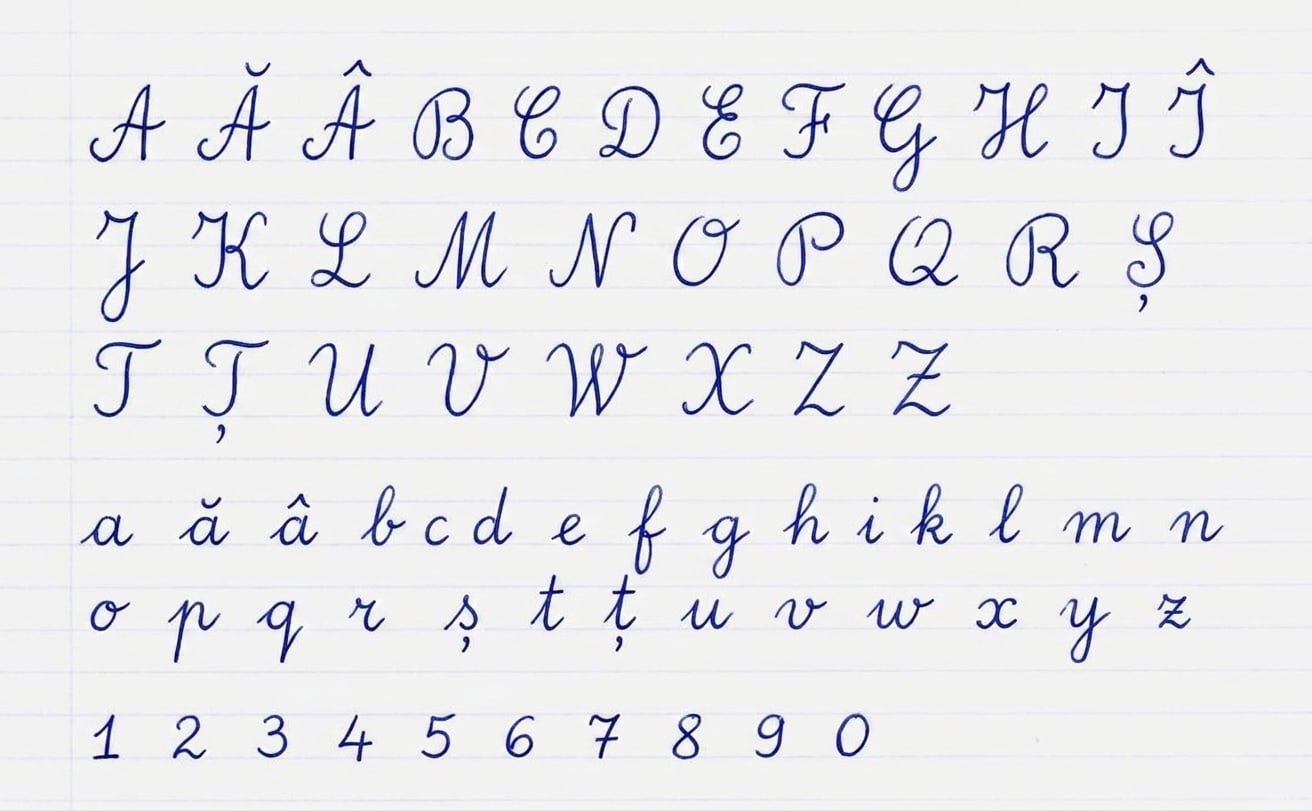 A Ă Â B C D E F G H I Î
J K L M N O P Q R Ș
T Ț U V W X Z Z
a ă â b c d e f g h i k l m n
o p q r ș t ț u v w x y z
1 2 3 4 5 6 7 8 9 0